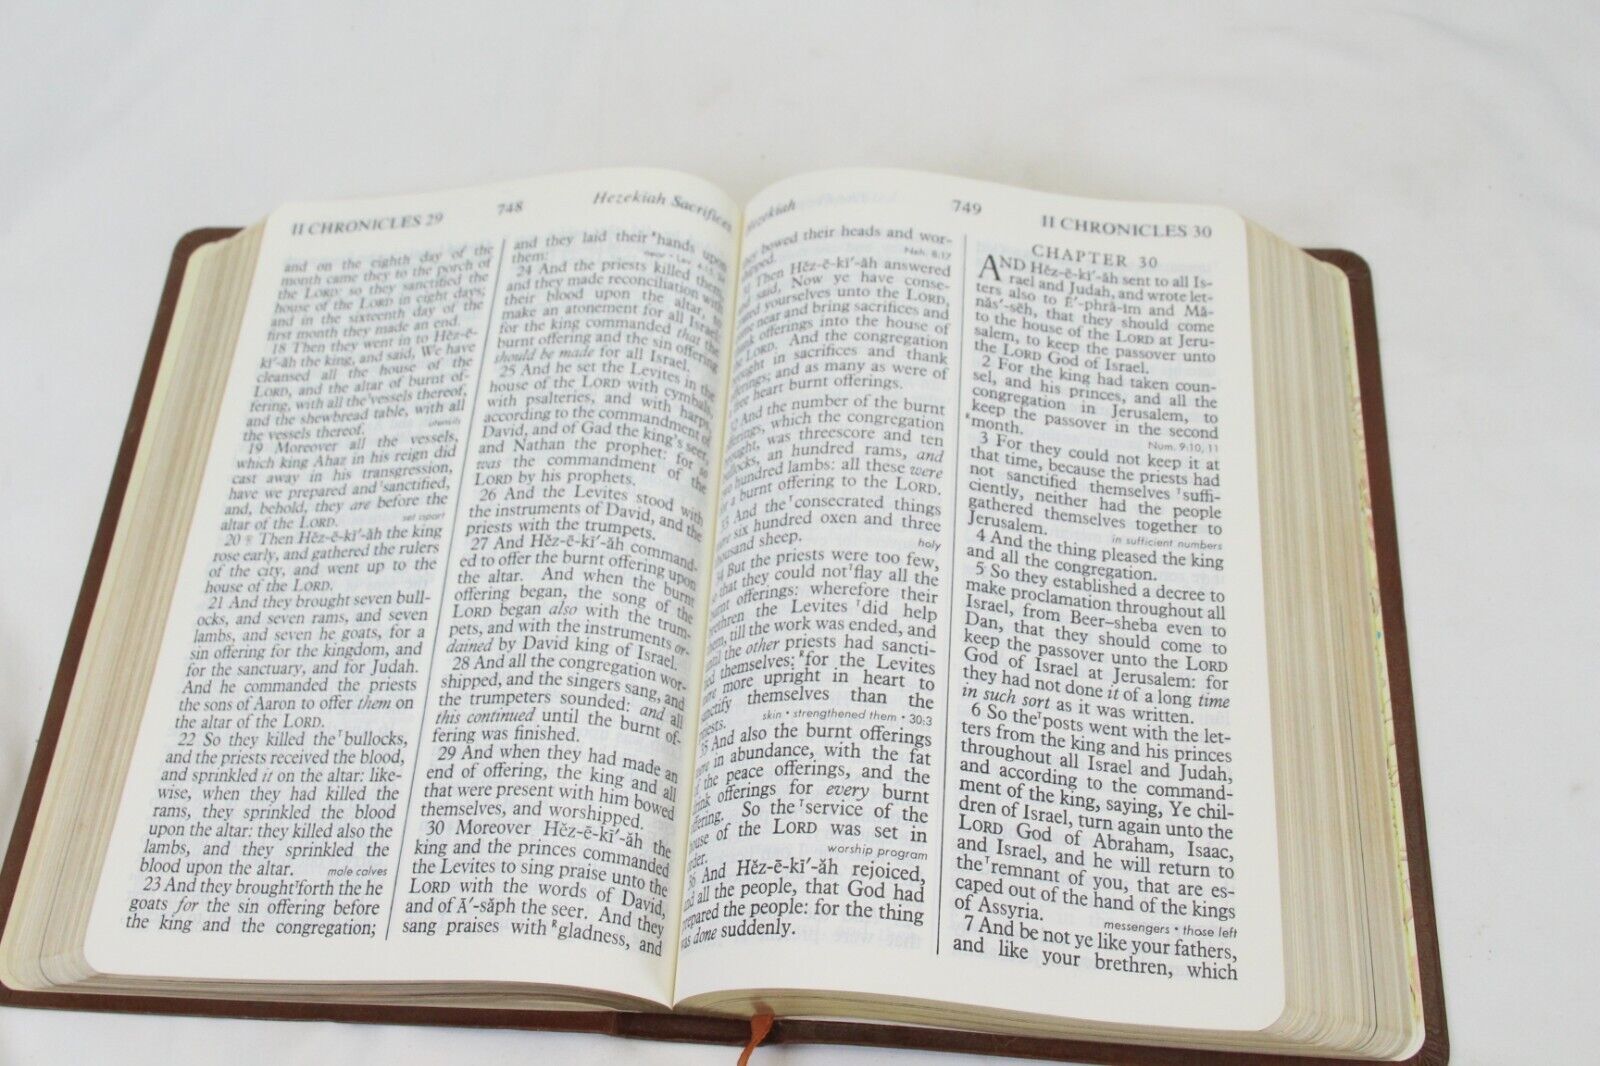 II CHRONICLES 29
748
Hezekiah Sacrifices
and on the eighth day of the
month came they to the porch of
the LORD: so they sanctified the
house of the LORD in eight days;
and in the sixteenth day of the
first month they made an end.
18 Then they went in to Hĕz-ē-
kī′-ăh the king, and said, We have
cleansed all the house of the
LORD, and the altar of burnt of-
fering, with all the ᵀvessels thereof,
and the shewbread table, with all
the vessels thereof. utensils
19 Moreover all the vessels,
which king Ahaz in his reign did
cast away in his transgression,
have we prepared and ᵀsanctified,
and, behold, they are before the
altar of the LORD. set apart
20 Then Hĕz-ē-kī′-ăh the king
rose early, and gathered the rulers
of the city, and went up to the
house of the LORD.
21 And they brought seven bull-
ocks, and seven rams, and seven
lambs, and seven he goats, for a
sin offering for the kingdom, and
for the sanctuary, and for Judah.
And he commanded the priests
the sons of Aaron to offer them on
the altar of the LORD.
22 So they killed the ᵀbullocks,
and the priests received the blood,
and sprinkled it on the altar: like-
wise, when they had killed the
rams, they sprinkled the blood
upon the altar: they killed also the
lambs, and they sprinkled the
blood upon the altar. male calves
23 And they brought ᵀforth the he
goats for the sin offering before
the king and the congregation;
and they laid their ᴿhands upon
them: near • Lev.
24 And the priests killed them,
and they made reconciliation with
their blood upon the altar, to
make an atonement for all Israel:
for the king commanded that the
burnt offering and the sin offering
should be made for all Israel.
25 And he set the Levites in the
house of the LORD with cymbals,
with psalteries, and with harps,
according to the commandment of
David, and of Gad the king's seer,
and Nathan the prophet: for so
was the commandment of the
LORD by his prophets.
26 And the Levites stood with
the instruments of David, and the
priests with the trumpets.
27 And Hĕz-ē-kī′-ăh command-
ed to offer the burnt offering upon
the altar. And when the burnt
offering began, the song of the
LORD began also with the trum-
pets, and with the instruments or-
dained by David king of Israel.
28 And all the congregation wor-
shipped, and the singers sang, and
the trumpeters sounded: and all
this continued until the burnt of-
fering was finished.
29 And when they had made an
end of offering, the king and all
that were present with him bowed
themselves, and worshipped.
30 Moreover Hĕz-ē-kī′-ăh the
king and the princes commanded
the Levites to sing praise unto the
LORD with the words of David,
and of Ā′-săph the seer. And they
sang praises with ᴿgladness, and
749
II CHRONICLES 30
bowed their heads and wor-
Neh. 8:17
Then Hĕz-ē-kī′-ăh answered
said, Now ye have conse-
yourselves unto the LORD,
near and bring sacrifices and
offerings into the house of
LORD. And the congregation
in sacrifices and thank
and as many as were of
heart burnt offerings.
And the number of the burnt
which the congregation
was threescore and ten
an hundred rams, and
hundred lambs: all these were
a burnt offering to the LORD.
And the ᵀconsecrated things
six hundred oxen and three
sheep. holy
But the priests were too few,
that they could not ᵀflay all the
offerings: wherefore their
the Levites ᵀdid help
till the work was ended, and
the other priests had sancti-
themselves: ᴿfor the Levites
more upright in heart to
themselves than the
skin • strengthened them • 30:3
And also the burnt offerings
in abundance, with the fat
the peace offerings, and the
offerings for every burnt
So the ᵀservice of the
of the LORD was set in
worship program
And Hĕz-ē-kī′-ăh rejoiced,
all the people, that God had
the people: for the thing
done suddenly.
CHAPTER 30
AND Hĕz-ē-kī′-ăh sent to all Is-
rael and Judah, and wrote let-
ters also to Ē′-phrā-im and Mā-
năs′-sĕh, that they should come
to the house of the LORD at Jeru-
salem, to keep the passover unto
the LORD God of Israel.
2 For the king had taken coun-
sel, and his princes, and all the
congregation in Jerusalem, to
keep the passover in the second
ᴿmonth. Num. 9:10, 11
3 For they could not keep it at
that time, because the priests had
not sanctified themselves ᵀsuffi-
ciently, neither had the people
gathered themselves together to
Jerusalem. in sufficient numbers
4 And the thing pleased the king
and all the congregation.
5 So they established a decree to
make proclamation throughout all
Israel, from Beer–sheba even to
Dan, that they should come to
keep the passover unto the LORD
God of Israel at Jerusalem: for
they had not done it of a long time
in such sort as it was written.
6 So the ᵀposts went with the let-
ters from the king and his princes
throughout all Israel and Judah,
and according to the command-
ment of the king, saying, Ye chil-
dren of Israel, turn again unto the
LORD God of Abraham, Isaac,
and Israel, and he will return to
the ᵀremnant of you, that are es-
caped out of the hand of the kings
of Assyria. messengers • those left
7 And be not ye like your fathers,
and like your brethren, which